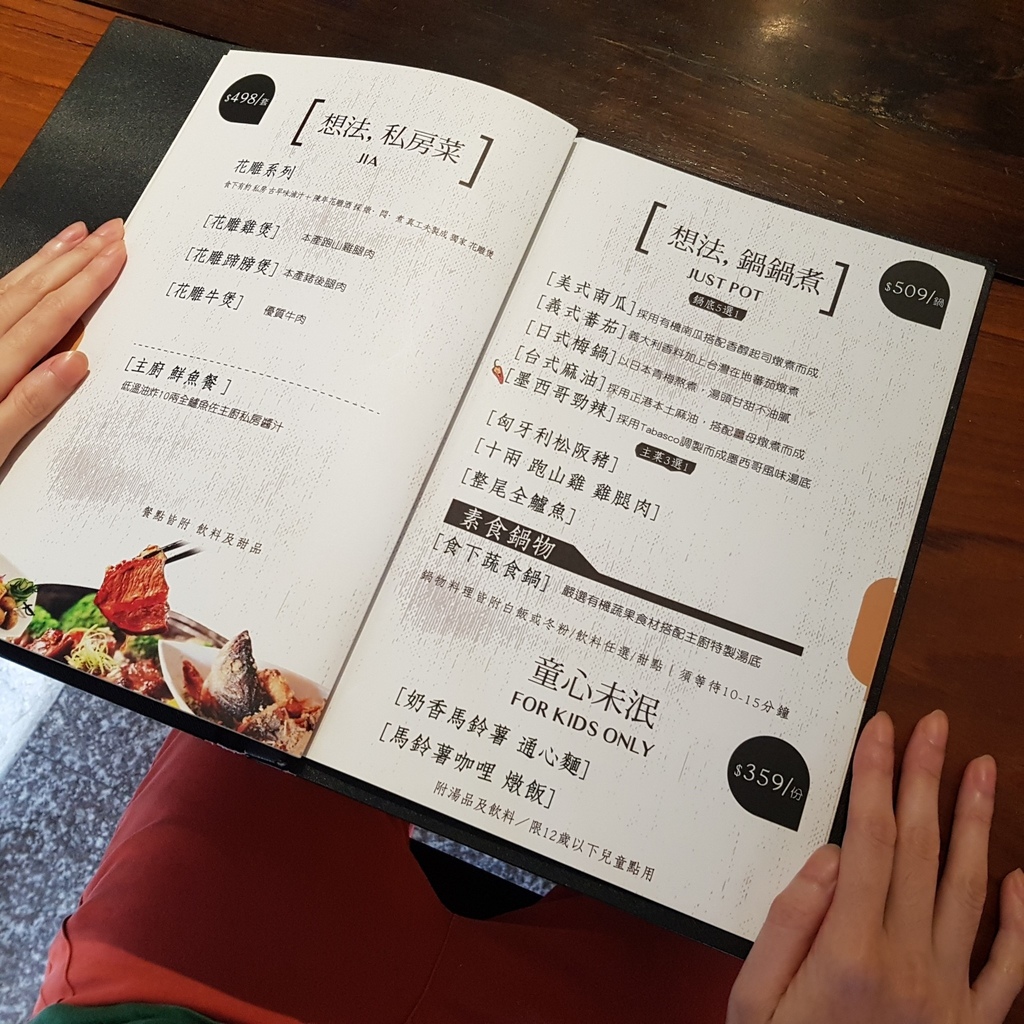 $498/套
想法, 私房菜
JIA
花雕系列
食下有約 私房 古早味滷汁+陳年花雕酒 採 燉．悶．煮 真工夫製成 獨家 花雕煲
[花雕雞煲] 本產跑山雞腿肉
[花雕蹄膀煲] 本產豬後腿肉
[花雕牛煲] 優質牛肉
[主廚 鮮魚餐 ]
低溫油炸10兩全鱸魚佐主廚私房醬汁
餐點皆附 飲料及甜品
想法, 鍋鍋煮
JUST POT
$509/鍋
鍋底5選1
[美式南瓜] 採用有機南瓜搭配香醇起司燉煮而成
[義式蕃茄] 義大利香料加上台灣在地蕃茄燉煮
[日式梅鍋] 以日本青梅熬煮，湯頭甘甜不油膩
[台式麻油] 採用正港本土麻油，搭配薑母燉煮而成
[墨西哥勁辣] 採用Tabasco調製而成墨西哥風味湯底
主菜3選1
[匈牙利松阪豬]
[十兩 跑山雞 雞腿肉]
[整尾全鱸魚]
素食鍋物
[食下蔬食鍋] 嚴選有機蔬果食材搭配主廚特製湯底
鍋物料理皆附白飯或冬粉/飲料任選/甜點 | 須等待10-15分鐘
童心未泯
FOR KIDS ONLY
$359/份
[奶香馬鈴薯 通心麵]
[馬鈴薯咖哩 燉飯]
附湯品及飲料／限12歲以下兒童點用